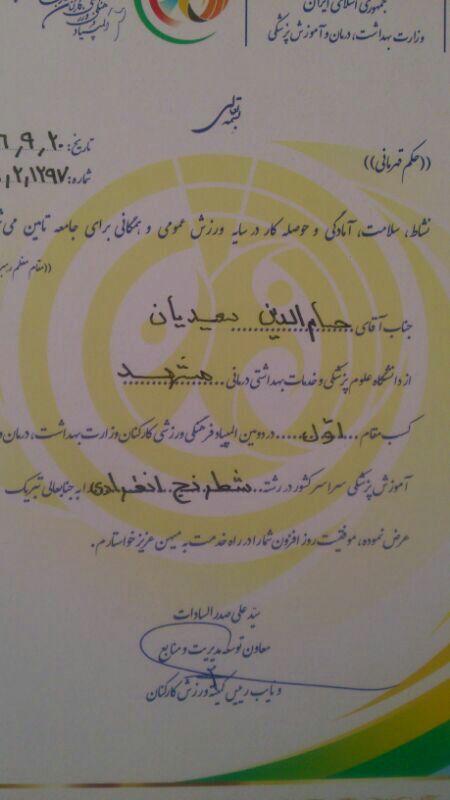 جمهوری اسلامی ایران
وزارت بهداشت، درمان و آموزش پزشکی
فرهنگی ورزشی کارکنان
المپیاد
بسمه تعالی
تاریخ: ۶٫۹٫۲۰
((حکم قهرمانی))
شماره: ۲٫۱۲۹۷
نشاط، سلامت، آمادگی و حوصله کار در سایه ورزش عمومی و همگانی برای جامعه تامین می
((مقام معظم
جناب آقای حسام الدین سعیدیان
از دانشگاه علوم پزشکی و خدمات بهداشتی درمانی مشهد
کسب مقام ...اول... در دومین المپیاد فرهنگی ورزشی کارکنان وزارت بهداشت، درمان و
آموزش پزشکی سراسر کشور در رشته شطرنج انفرادی را به جنابعالی تبریک
عرض نموده، موفقیت روز افزون شما را در راه خدمت به میهن عزیز خواستارم.
سید علی صدرالسادات
معاون توسعه مدیریت و منابع
و نایب رییس کمیته ورزش کارکنان